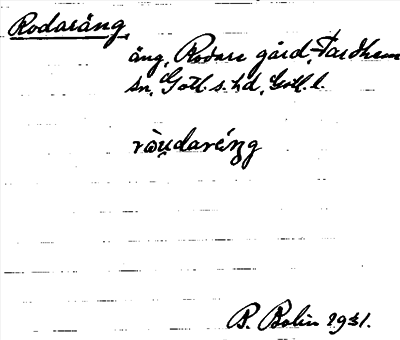 Rodaräng
äng, Rodare gård, Fardhem
sn, Gotl. s. hd, Gotl. l.
B. Bolin 1931.